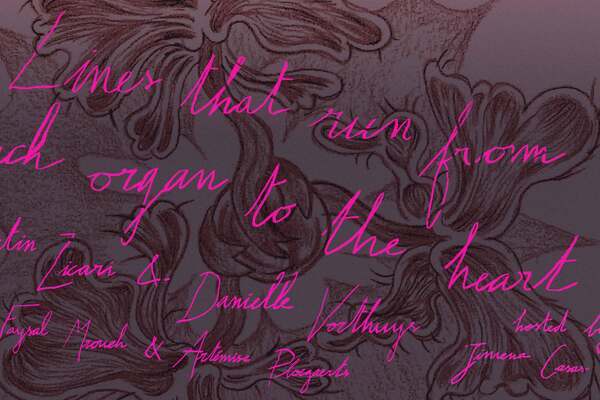 Lines that run from
ch organ to the heart
tin Zicari & Danielle Vorthuys
Faysal Mroueh & Artémise Ploegaerts
hosted b
Jimena Casas